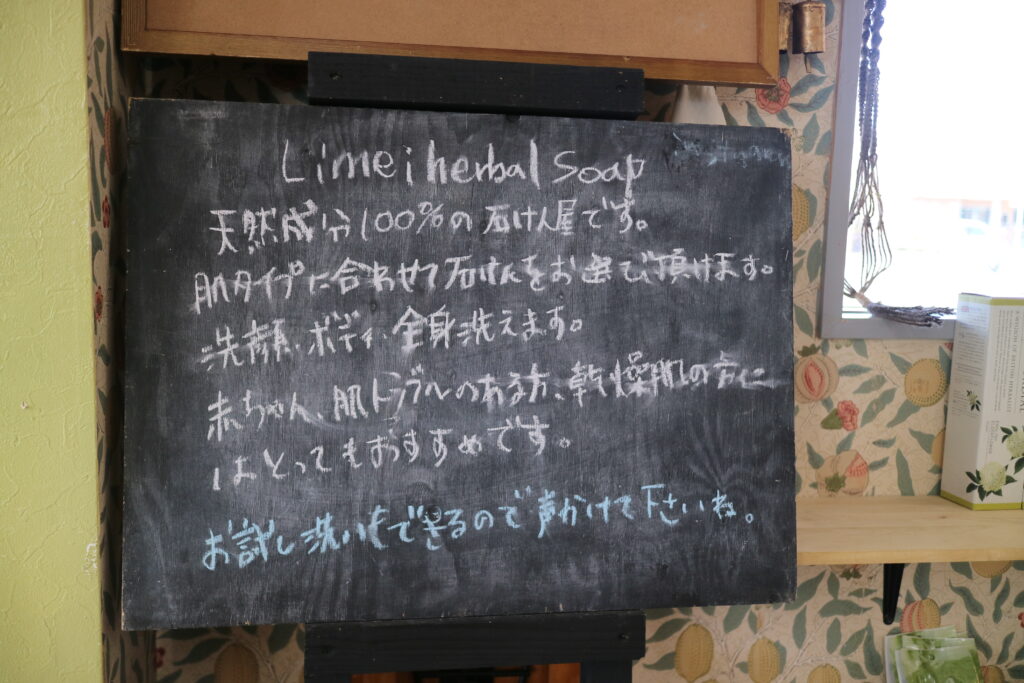 Limei herbal Soap
天然成分100%の石けん屋です。
肌タイプに合わせて石けんをお選び頂けます。
洗顔・ボディ・全身洗えます。
赤ちゃん、肌トラブルのある方、乾燥肌の方に
はとってもおすすめです。
お試し洗いもできるので声かけて下さいね。